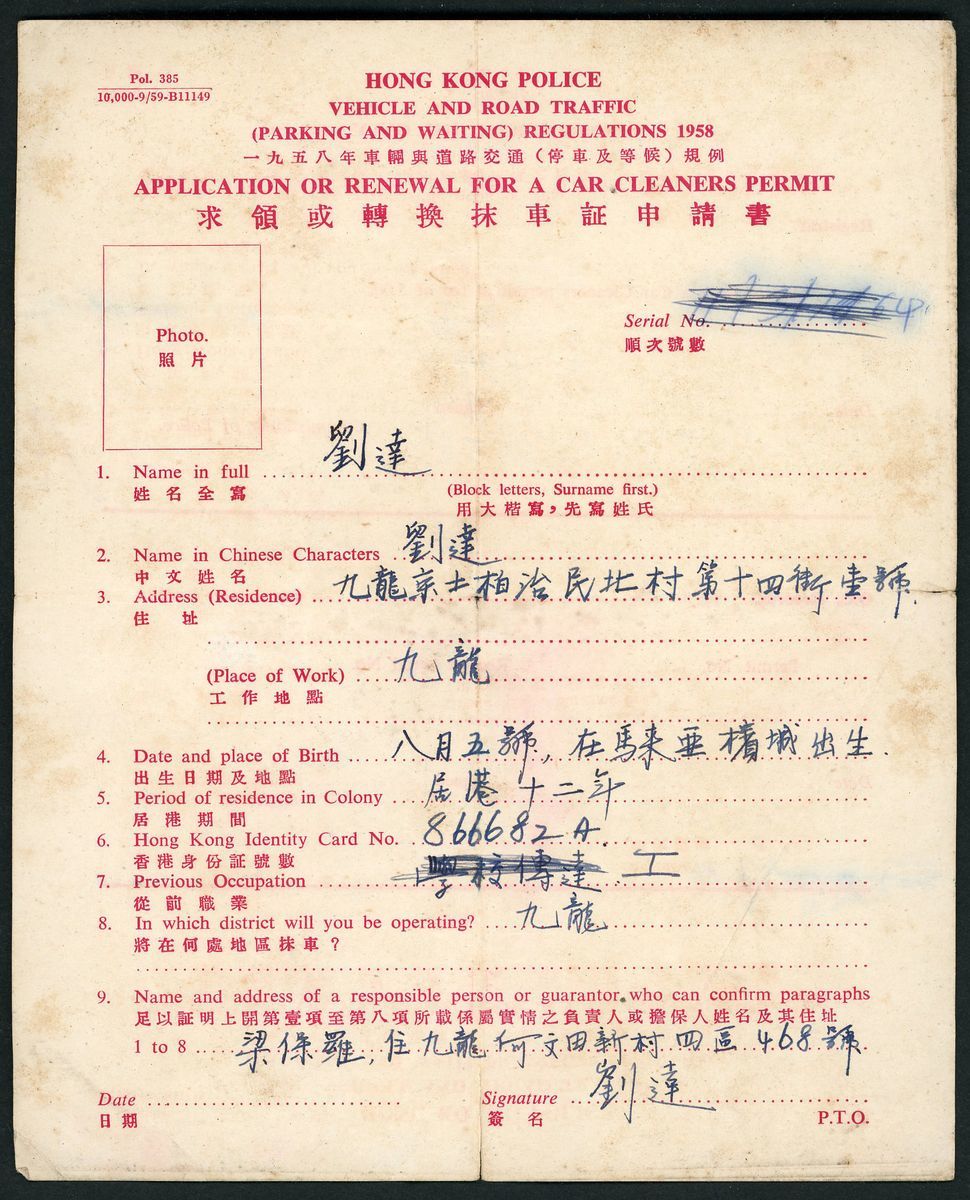 Pol. 385
10,000-9/59-B11149
HONG KONG POLICE
VEHICLE AND ROAD TRAFFIC
(PARKING AND WAITING) REGULATIONS 1958
一九五八年車輛與道路交通（停車及等候）規例
APPLICATION OR RENEWAL FOR A CAR CLEANERS PERMIT
求領或轉換抹車証申請書
Photo.
照片
Serial No.
順次號數
1. Name in full 劉達
姓名全寫
(Block letters, Surname first.)
用大楷寫，先寫姓氏
2. Name in Chinese Characters 劉達
中文姓名
3. Address (Residence) 九龍京士柏治民北村第十四街壹號.
住址
(Place of Work) 九龍
工作地點
4. Date and place of Birth 八月五號, 在馬来亜檳城出生.
出生日期及地點
5. Period of residence in Colony 居港十二年
居港期間
6. Hong Kong Identity Card No. 866682 A.
香港身份証號數
7. Previous Occupation 學校傳達 工
從前職業
8. In which district will you be operating? 九龍
將在何處地區抹車？
9. Name and address of a responsible person or guarantor who can confirm paragraphs
足以証明上開第壹項至第八項所載係屬實情之負責人或擔保人姓名及其住址
1 to 8 梁保羅, 住九龍何文田新村四區468號
Date
日期
Signature 劉達
簽名
P.T.O.